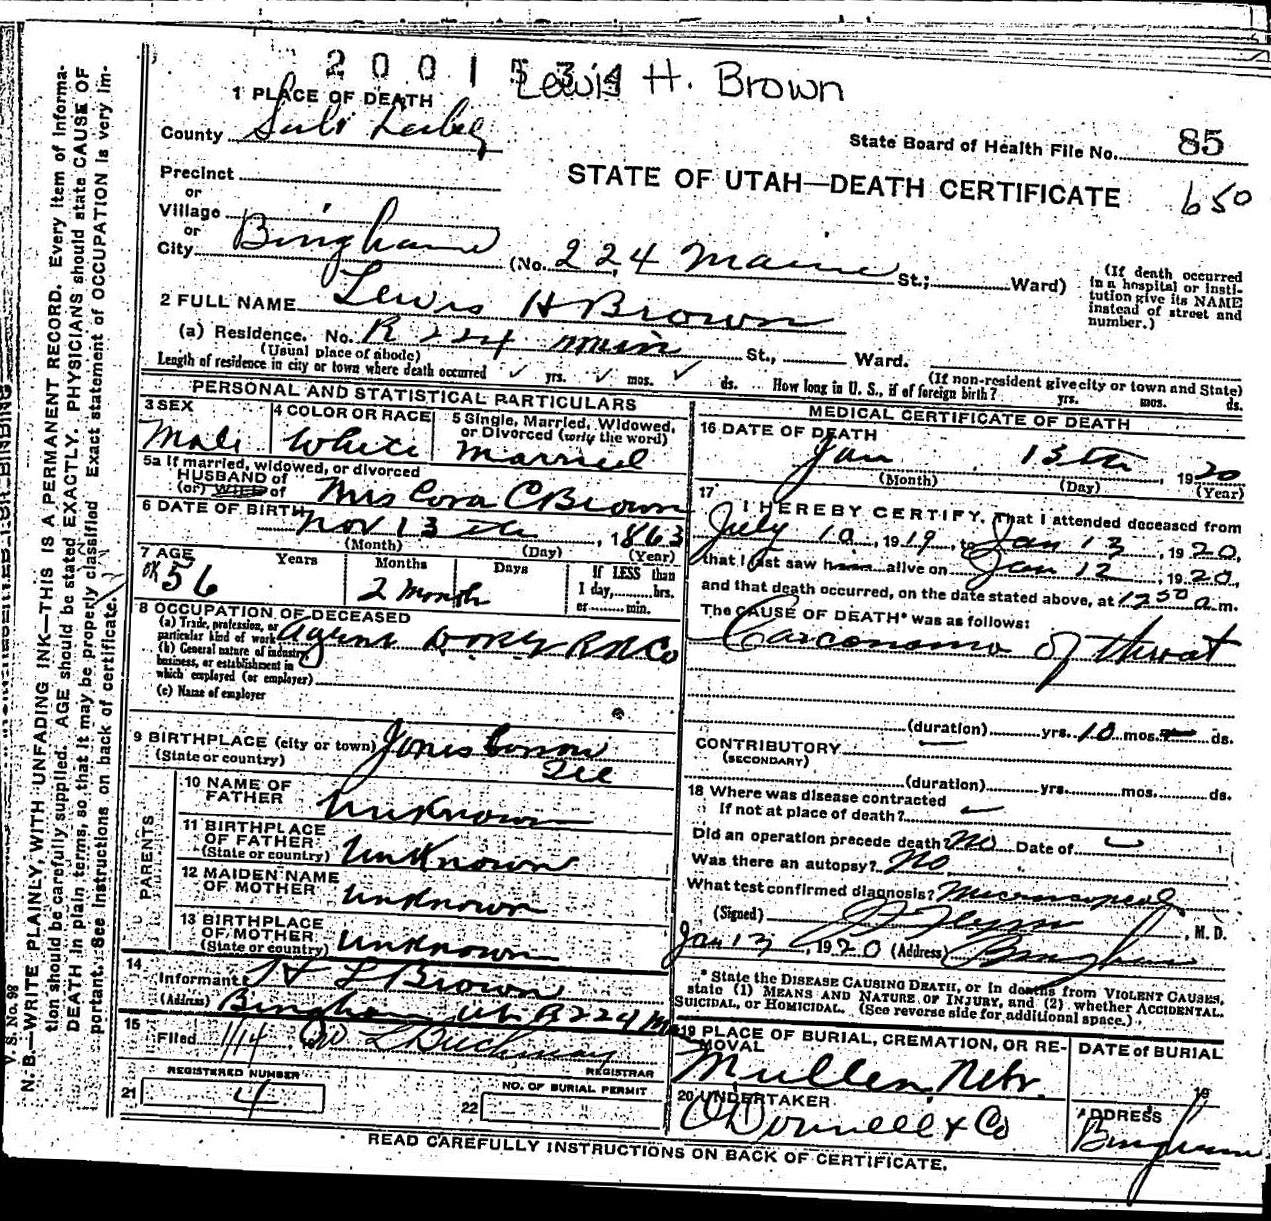 2001534 Lewis H. Brown
1 PLACE OF DEATH
County Salt Lake
State Board of Health File No. 85
STATE OF UTAH—DEATH CERTIFICATE 650
Precinct
or
Village
or
City Bingham (No. 224 Main St.; Ward)
(If death occurred in a hospital or insti-
tution give its NAME
instead of street and
number.)
2 FULL NAME Lewis H Brown
(a) Residence. No. R 224 Main St., Ward.
(Usual place of abode) (If non-resident give city or town and State)
Length of residence in city or town where death occurred yrs. mos. ds. How long in U. S., if of foreign birth? yrs. mos. ds.
PERSONAL AND STATISTICAL PARTICULARS
3 SEX 4 COLOR OR RACE 5 Single, Married, Widowed,
or Divorced (write the word)
Male White Married
5a If married, widowed, or divorced
HUSBAND of
(or) WIFE of Mrs Cora C Brown
6 DATE OF BIRTH Nov 13 th, 1863
(Month) (Day) (Year)
7 AGE Years Months Days If LESS than
1 day, hrs.
or min.
56 2 Month
8 OCCUPATION OF DECEASED
(a) Trade, profession, or
particular kind of work Agent RR Co
(b) General nature of industry,
business, or establishment in
which employed (or employer)
(c) Name of employer
9 BIRTHPLACE (city or town)
(State or country)
PARENTS
10 NAME OF
FATHER Unknown
11 BIRTHPLACE
OF FATHER
(State or country) Unknown
12 MAIDEN NAME
OF MOTHER Unknown
13 BIRTHPLACE
OF MOTHER
(State or country) Unknown
14
Informant H L Brown
(Address) Bingham Ut R 224 M
15
Filed 1/14
REGISTRAR
REGISTERED NUMBER
21 4
NO. OF BURIAL PERMIT
22
MEDICAL CERTIFICATE OF DEATH
16 DATE OF DEATH
Jan 13th, 1920
(Month) (Day) (Year)
17
I HEREBY CERTIFY, That I attended deceased from
July 10, 1919, to Jan 13, 1920,
that I last saw him alive on Jan 12, 1920,
and that death occurred, on the date stated above, at 12 50 a.m.
The CAUSE OF DEATH* was as follows:
Carconoma of throat
(duration) yrs. 10 mos. ds.
CONTRIBUTORY
(SECONDARY)
(duration) yrs. mos. ds.
18 Where was disease contracted
if not at place of death?
Did an operation precede death? No Date of
Was there an autopsy? No
What test confirmed diagnosis?
(Signed) Flynn, M. D.
Jan 13, 1920 (Address) Bingham
* State the DISEASE CAUSING DEATH, or in deaths from VIOLENT CAUSES,
state (1) MEANS AND NATURE OF INJURY, and (2) whether ACCIDENTAL,
SUICIDAL, or HOMICIDAL. (See reverse side for additional space.)
19 PLACE OF BURIAL, CREMATION, OR RE-
MOVAL
Mullen, Nebr.
DATE of BURIAL
19
20 UNDERTAKER
O'Donnell & Co
ADDRESS
Bingham
READ CAREFULLY INSTRUCTIONS ON BACK OF CERTIFICATE.
V. S. No. 98
N. B.—WRITE PLAINLY, WITH UNFADING INK—THIS IS A PERMANENT RECORD. Every item of informa-
tion should be carefully supplied. AGE should be stated EXACTLY. PHYSICIANS should state CAUSE OF
DEATH in plain terms, so that it may be properly classified. Exact statement of OCCUPATION is very im-
portant. See instructions on back of certificate.